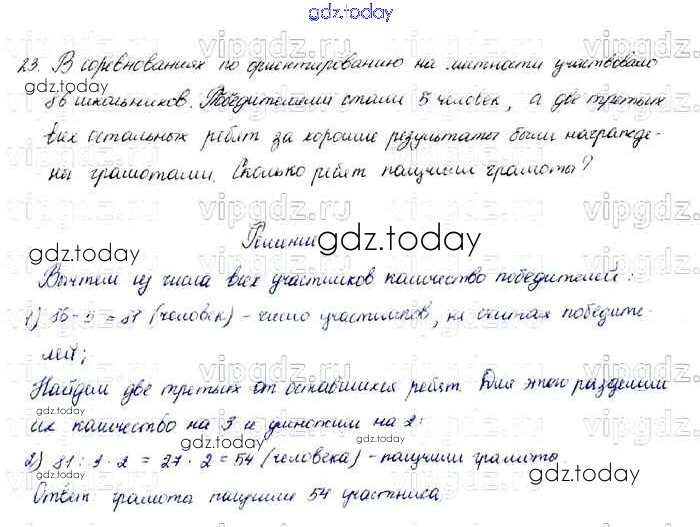 gdz.today
23. В соревнованиях по ориентированию на местности участвовало
86 школьников. Победителями стали 5 человек, а две третьих
всех остальных ребят за хорошие результаты были награжде-
ны грамотами. Сколько ребят получили грамоты?
Решение
Вычтем из числа всех участников количество победителей:
1) 86 - 5 = 81 (человек) - число участников, не считая победите-
лей;
Найдем две третьих от оставшихся ребят. Для этого разделим
их количество на 3 и умножим на 2:
2) 81 : 3 · 2 = 27 · 2 = 54 (человека) - получили грамоты.
Ответ: грамоты получили 54 участника.